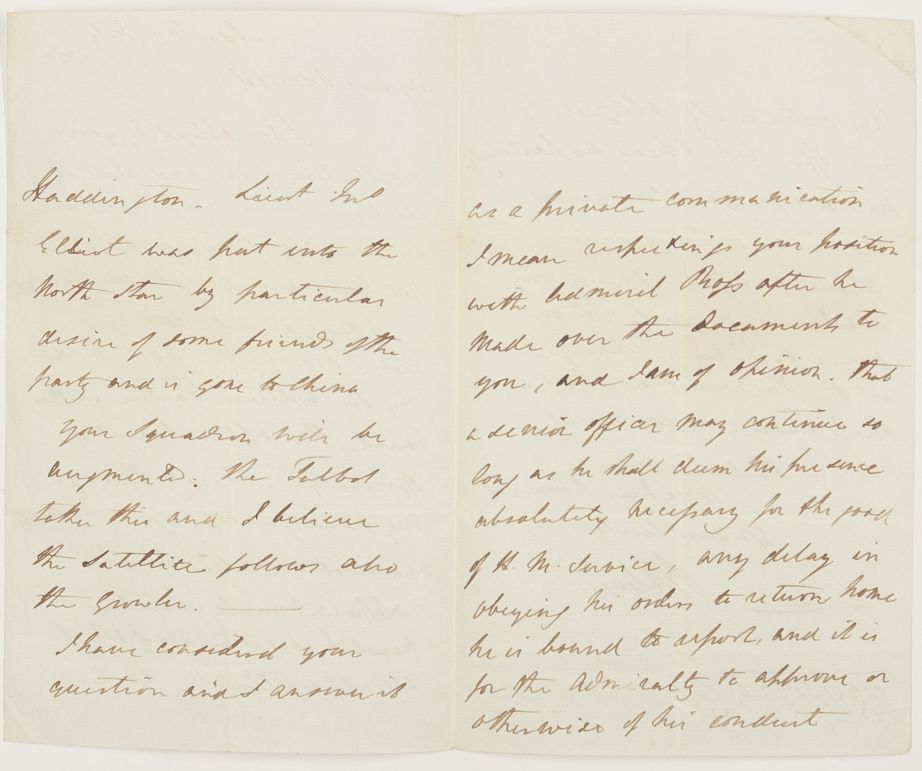 Haddington. Lieut
Elliot was put into the
North Star by particular
desire of some friends of the
party and is gone to China
your Squadron will be
augmented. The Talbot
takes this and I believe
the Satellite follows also
the Growler.
I have considered your
question and I answer it
as a private communication
I mean respectings your position
with Admiral Ross after he
made over the Documents to
you, and I am of opinion. that
a senior officer may continue so
long as he shall deem his presence
absolutely necessary for the good
of H. M. Service, any delay in
obeying his orders to return home
he is bound to report, and it is
for the Admiralty to approve or
otherwise of his conduct